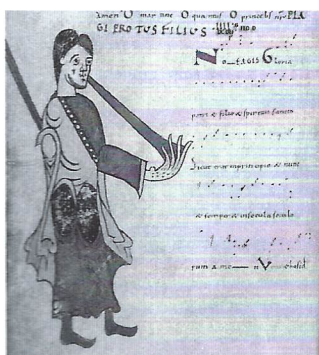 amen O mar tine O quam O princeps PLA
GI PRO TUS FILIUS
NO_EAGIS Gloria
patri & filio & spiritui sancto
Sicut erat inprincipio & nunc
& semper & insecula seculo
rum a me— n V